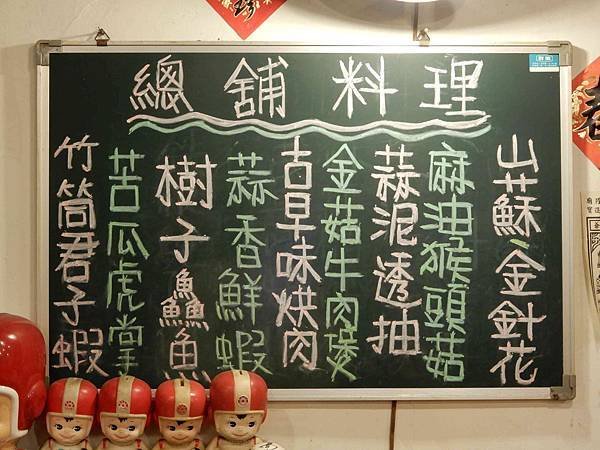 總舖料理
山蘇、金針花
麻油猴頭菇
蒜泥透抽
金菇牛肉煲
古早味烘肉
蒜香鮮蝦
樹子鱻魚
苦瓜虎掌
竹筒君子蝦
春